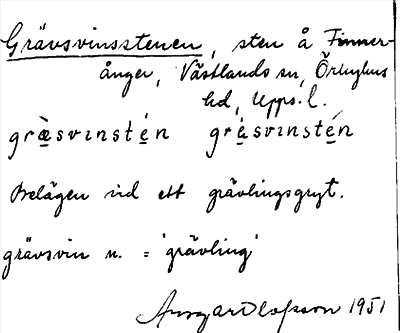 Grävsvinsstenen, sten å Finner-
ånger, Västlands sn, Örbyhus
hd, Upps. l.
grä̀svinstén grä́svinstén
Belägen vid ett grävlingsgryt.
grävsvin n. = 'grävling'
Ansgar Olofsson 1951